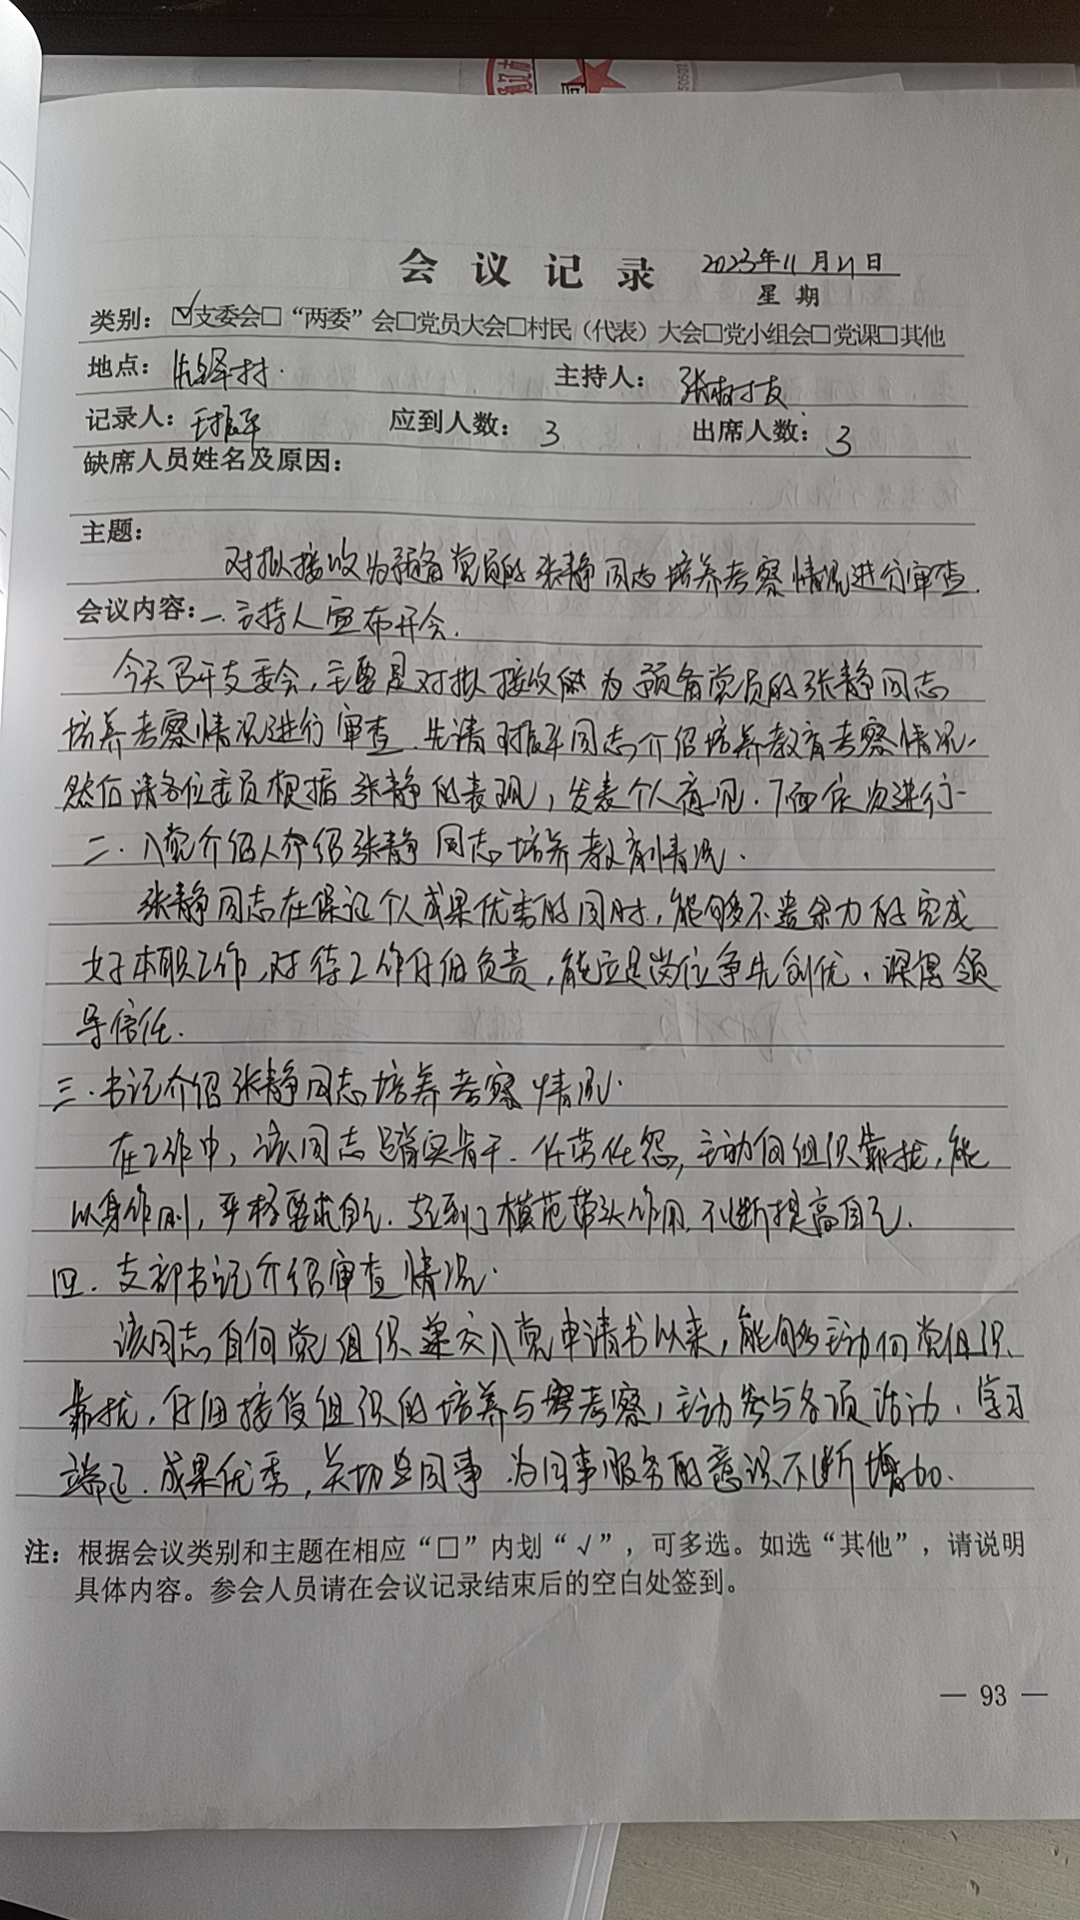 会议记录 2023年11月21日
星期
类别：☑支委会□“两委”会□党员大会□村民（代表）大会□党小组会□党课□其他
地点： 村. 主持人：张树友
记录人：王振平 应到人数：3 出席人数：3
缺席人员姓名及原因：
主题：
对拟接收为预备党员的张静同志培养考察情况进行审查.
会议内容：一.主持人宣布开会.
今天召开支委会，主要是对拟接收 为预备党员的张静同志
培养考察情况进行审查.先请王振平同志介绍培养教育考察情况.
然后请各位委员根据张静的表现，发表个人意见.下面依次进行.
二.入党介绍人介绍张静同志培养教育情况.
张静同志在保证个人成果优秀的同时，能够不遗余力的完成
好本职工作，对待工作仔细负责，能立足岗位争先创优，深得领
导信任.
三.书记介绍张静同志培养考察情况.
在工作中，该同志踏实肯干.任劳任怨，主动向组织靠拢，能
以身作则，严格要求自己.起到了模范带头作用.不断提高自己.
四.支部书记介绍审查情况.
该同志自向党组织递交入党申请书以来，能够主动向党组织
靠拢，仔细接受组织的培养与考察，主动参与各项活动，学习
端正.成果优秀，关切空同事.为同事服务的意识不断增加.
注：根据会议类别和主题在相应“□”内划“√”，可多选。如选“其他”，请说明
具体内容。参会人员请在会议记录结束后的空白处签到。
— 93 —